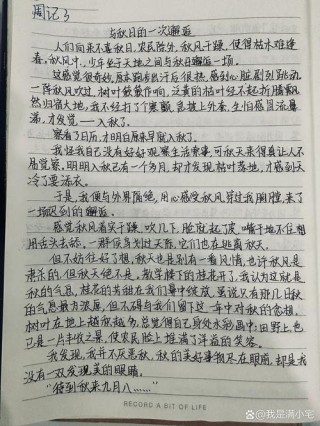 周记3
与秋日的一次邂逅
人们向来不喜秋日,农民除外,秋风干燥,使得枯木难逢
春,秋风中,少年坐于天地之间与秋日邂逅一场。
这感觉很奇妙,原本跑步出汗后很热,感到心脏剧烈跳动,
一阵秋风吹过,树叶微微作响,泛黄的枯叶经不起折腾飘飘
然归宿大地,我不经打了个寒颤,急披上外套,生怕感冒流鼻
涕,才发觉——入秋了。
察看了日历,才明白原来早就入秋了。
我怪我自己没有好好观察生活琐事,可秋天来得真让人不
易觉察,明明入秋已有一个多月,却才发现枯叶落地,才感到天
冷了要添衣。
于是,我便与外界隔绝,用心感受秋风穿过我胸膛,来了
一场迟到的邂逅。
感觉秋风着实干燥,吹几下,脸就起了皮,嘴干地不住
用舌头去舔,一群候鸟划过天际,它们也在逃离秋天。
但不妨往好了想,秋天也是别有一番风情,也许秋风是
肃杀的,但秋天绝不是,教学楼下的桂花开了,我认为这就是
秋的气息,桂花的芳甜在我们鼻中绽放,虽说只有那几日秋
的气息最为浓厚,但不碍与我们留下这一年中对秋的念想。
树叶在地上越积越多,总觉得自己身处水彩画中;田野上,也
已是一片丰收之景,使农民脸上堆满了洋溢的笑容。
我发现,我并不厌恶秋,秋的美好事物尽在眼前,却是我
没有一双发现美的眼睛。
“待到秋来九月八……”
RECORD A BIT OF LIFE
@我是满小宅